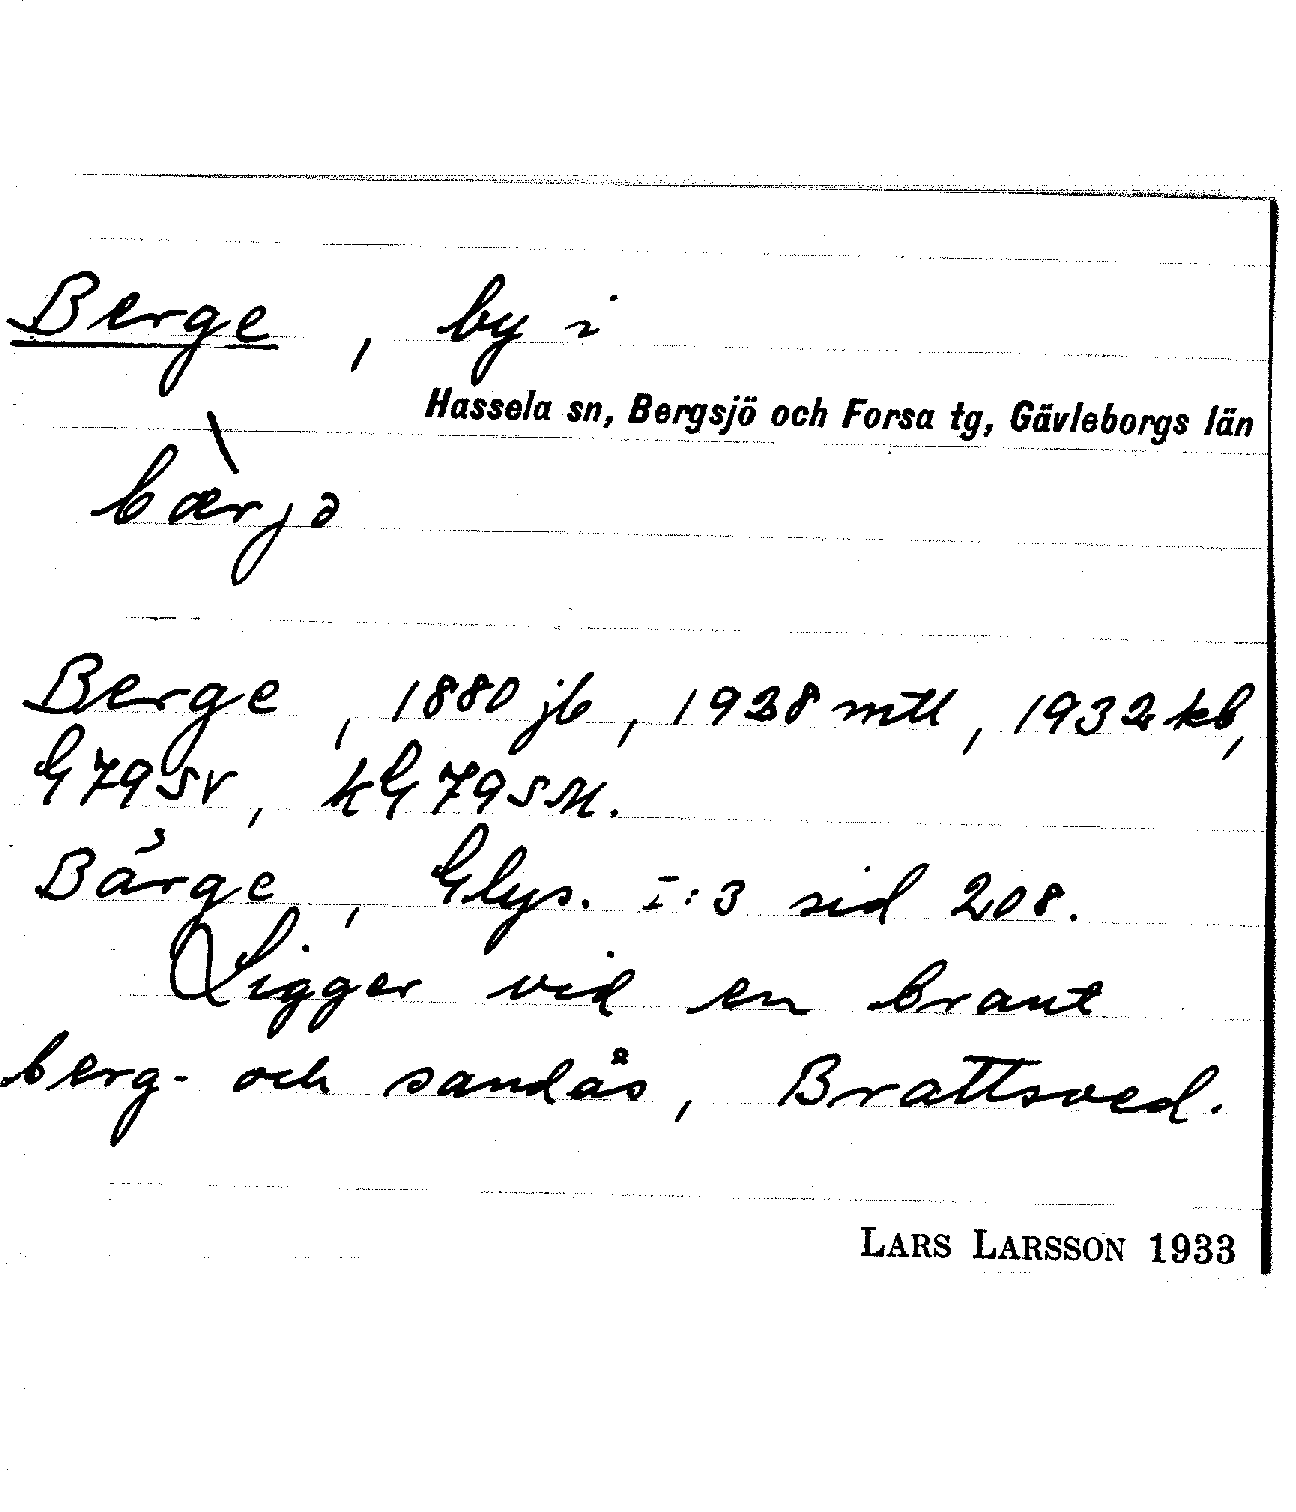 Berge, by i
Hassela sn, Bergsjö och Forsa tg, Gävleborgs län
bær̀jə
Berge, 1880 jb, 1928 mtl, 1932 kb,
G 79 SV, kG 79 SM.
Bärge, Glys. I:3 sid 208.
Ligger vid en brant
berg- och sandås, Brattsved.
LARS LARSSON 1933